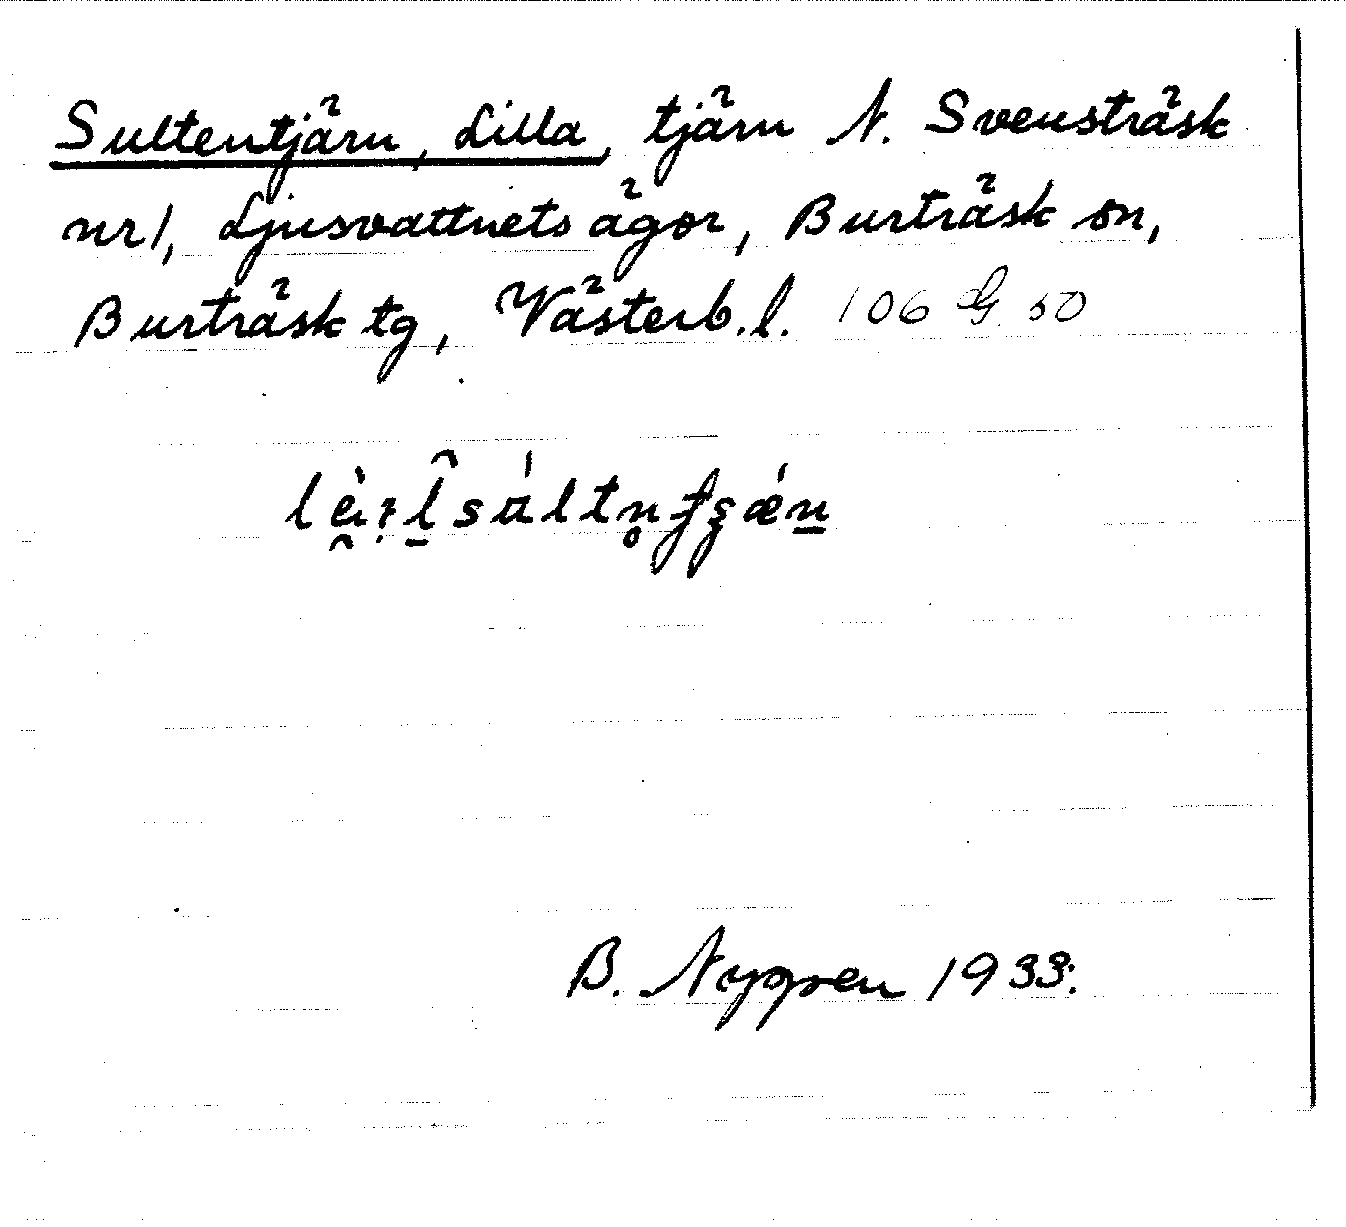 Sultentjärn, Lilla, tjärn N. Svensträsk
nr 1, Ljusvattnets ägor, Burträsk sn,
Burträsk tg, Västerb. l. 106 G 50
B. Nyppen 1933.